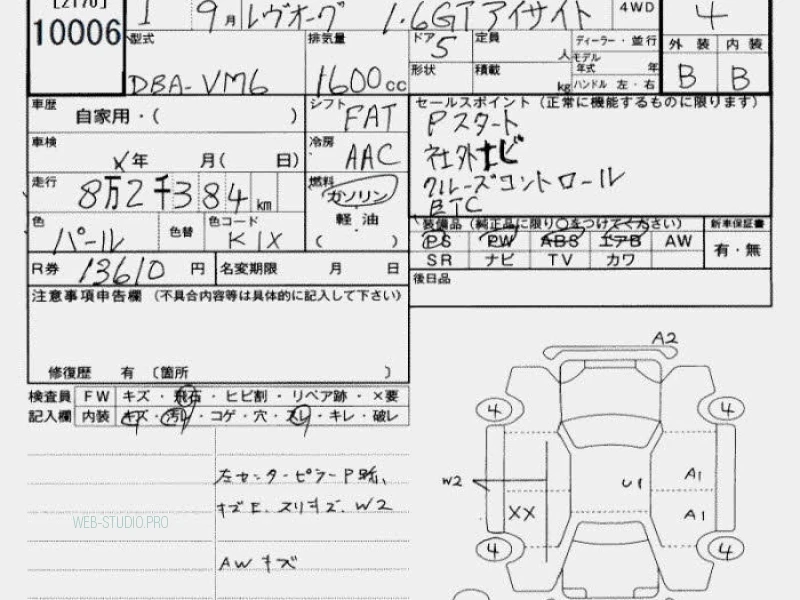 [2170]
10006
1 9月 レヴォーグ 1.6GTアイサイト 4WD 4
型式 DBA-VM6
排気量 1600cc
ドア 5
定員 人
ディーラー・並行
モデル年式 年
形状
積載 kg
ハンドル 左・右
外装 内装
B B
車歴 自家用・( )
シフト FAT
車検 X年 月( 日)
冷房 AAC
走行 8万2千384km
燃料 ガソリン
軽油
( )
色 パール 色替
色コード K1X
R券 13610円
名変期限 月 日
セールスポイント (正常に機能するものに限ります)
Pスタート
社外ナビ
クルーズコントロール
ETC
装備品 (純正品に限り○をつけてください)
PS PW ABS エアB AW
SR ナビ TV カワ
新車保証書
有・無
後日品
注意事項申告欄 (不具合内容等は具体的に記入して下さい)
修復歴 有 〔箇所 〕
検査員 FW キズ・飛石・ヒビ割・リペア跡・×要
記入欄 内装 キズ・汚れ・コゲ・穴・スレ・キレ・破レ
左センターピラーP跡、
キズE、スリキズ、W2
AWキズ
WEB-STUDIO.PRO
A2
4 4
W2 U1 A1
XX A1
4 4